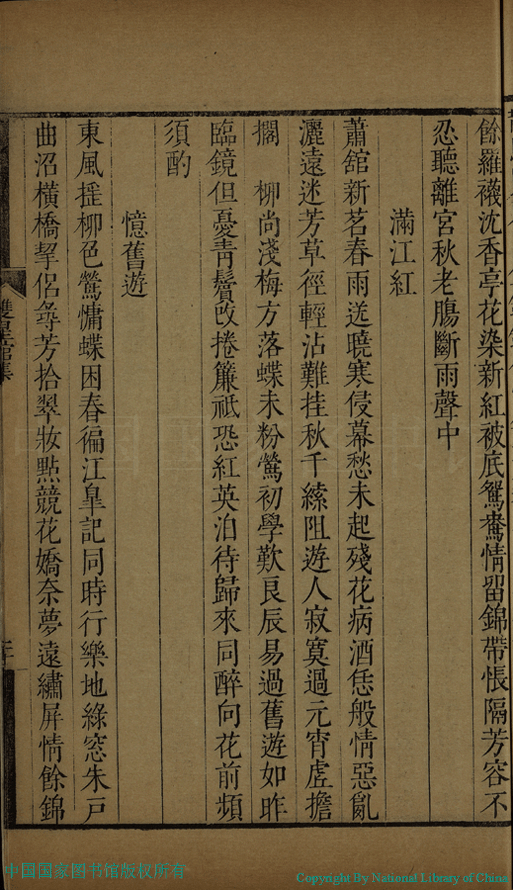 餘羅襪沈香亭花染新紅被底鴛鴦情留錦帶悵隔芳容不
忍聽離宮秋老腸斷雨聲中
滿江紅
蕭舘新茗春雨送曉寒侵幕愁未起殘花病酒恁般情惡亂
灑遠迷芳草徑輕沾難挂秋千索阻遊人寂寞過元宵虛擔
擱　柳尚淺梅方落蝶未粉鶯初學歎良辰易過舊遊如昨
臨鏡但憂靑鬢改捲簾祗恐紅英泊待歸來同醉向花前頻
須酌
憶舊遊
東風搖柳色鶯慵蝶困春徧江臯記同時行樂地綠窓朱戸
曲沼橫橋挈侶尋芳拾翠妝點競花嬌奈夢遠繡屏情餘錦
雙星館集
中国国家图书馆版权所有
Copyright By National Library of China